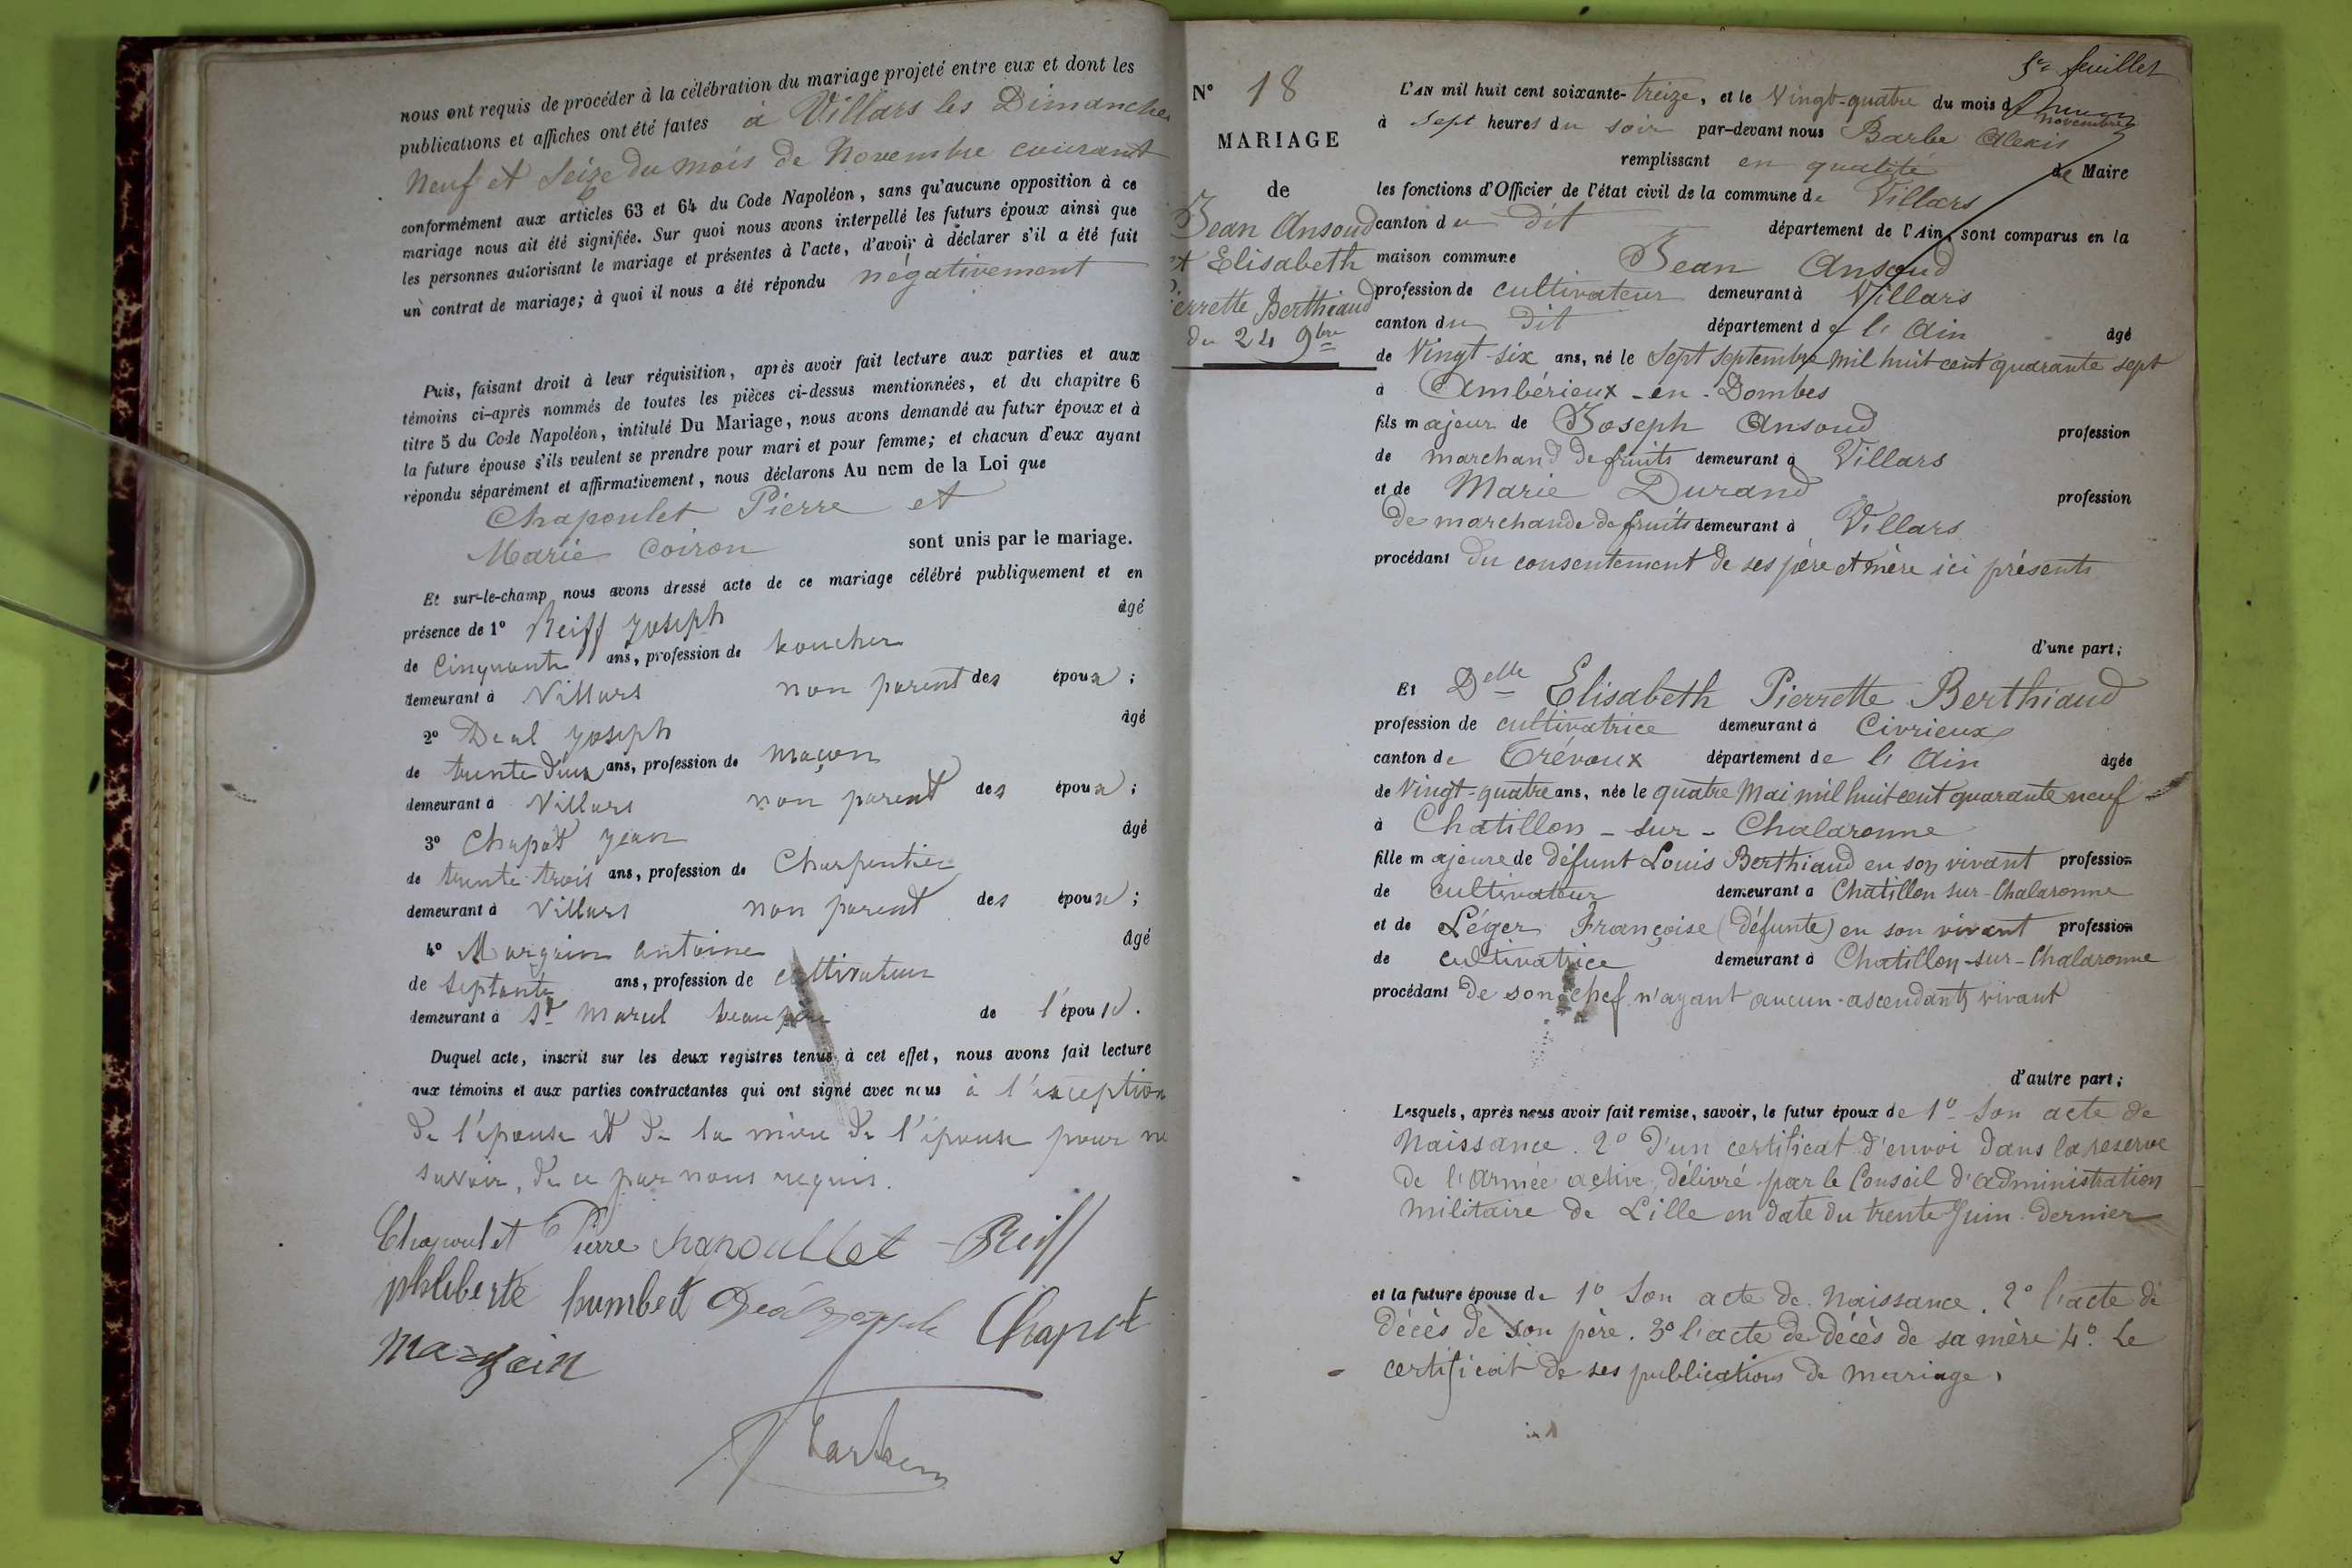 nous ont requis de procéder à la célébration du mariage projeté entre eux et dont les
publications et affiches ont été faites à Villars les Dimanches
Neuf et Seize du mois de Novembre courant
conformément aux articles 63 et 64 du Code Napoléon, sans qu'aucune opposition à ce
mariage nous ait été signifiée. Sur quoi nous avons interpellé les futurs époux ainsi que
les personnes autorisant le mariage et présentes à l'acte, d'avoir à déclarer s'il a été fait
un contrat de mariage; à quoi il nous a été répondu négativement
Puis, faisant droit à leur réquisition, après avoir fait lecture aux parties et aux
témoins ci-après nommés de toutes les pièces ci-dessus mentionnées, et du chapitre 6
titre 5 du Code Napoléon, intitulé Du Mariage, nous avons demandé au futur époux et à
la future épouse s'ils veulent se prendre pour mari et pour femme; et chacun d'eux ayant
répondu séparément et affirmativement, nous déclarons Au nom de la Loi que
Chapoulet Pierre et
Marie Coiron sont unis par le mariage.
Et sur-le-champ nous avons dressé acte de ce mariage célébré publiquement et en
présence de 1° Reiff Joseph âgé
de Cinquante ans, profession de boucher
demeurant à Villars non parent des époux;
2° Deal Joseph âgé
de trente deux ans, profession de maçon
demeurant à Villars non parent des époux;
3° Chapot Jean âgé
de trente trois ans, profession de Charpentier
demeurant à Villars non parent des époux;
4° Margain antoine âgé
de Septante ans, profession de cultivateur
demeurant à St Marcel beau père de l'épousé.
Duquel acte, inscrit sur les deux registres tenus à cet effet, nous avons fait lecture
aux témoins et aux parties contractantes qui ont signé avec nous à l'exception
de l'épouse et de la mère de l'épouse pour ne
savoir, de ce par nous requis.
Chapoulet Pierre chapoullet Reiff
philiberte humbert Deal Joseph Chapot
margain
Barbe
5e feuillet
N° 18
MARIAGE
de
Jean Ansoud
et Elisabeth
Pierrette Berthiaud
du 24 9bre
L'AN mil huit cent soixante-treize, et le Vingt-quatre du mois de novembre
à sept heures du soir par-devant nous Barbe Alexis
remplissant en qualité de Maire
les fonctions d'Officier de l'état civil de la commune de Villars
canton du dit département de l'Ain, sont comparus en la
maison commune Jean Ansoud
profession de cultivateur demeurant à Villars
canton du dit département de l'Ain âgé
de Vingt-six ans, né le Sept Septembre mil huit cent quarante sept
à Ambérieux-en-Dombes
fils majeur de Joseph Ansoud profession
de marchand de fruits demeurant à Villars
et de Marie Durand profession
de marchande de fruits demeurant à Villars
procédant du consentement de ses père et mère ici présents
d'une part;
Et Delle Elisabeth Pierrette Berthiaud
profession de cultivatrice demeurant à Civrieux
canton de Trévoux département de l'Ain âgée
de Vingt-quatre ans, née le quatre Mai mil huit cent quarante neuf
à Chatillon-sur-Chalaronne
fille majeure de défunt Louis Berthiaud en son vivant profession
de cultivateur demeurant à Chatillon sur-Chalaronne
et de Léger Françoise (défunte) en son vivant profession
de cultivatrice demeurant à Chatillon-sur-Chalaronne
procédant de son chef n'ayant aucun ascendants vivant
d'autre part;
Lesquels, après nous avoir fait remise, savoir, le futur époux de 1° Son acte de
Naissance. 2° D'un certificat d'envoi dans la reserve
de l'armée active, délivré par le Conseil d'administration
militaire de Lille en date du trente Juin dernier
et la future épouse de 1° Son acte de Naissance. 2° l'acte de
décès de son père. 3° l'acte de décès de sa mère 4°. Le
certificat de ses publications de mariage.